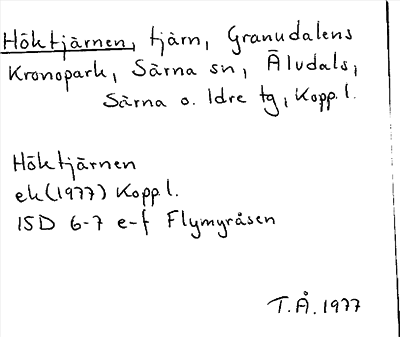 Höktjärnen, tjärn, Granudalens
Kronopark, Särna sn, Äludals,
Särna o. Idre tg, Kopp. l.
Höktjärnen
ek (1977) Kopp l.
15D 6-7 e-f Flymyråsen
T.Å. 1977